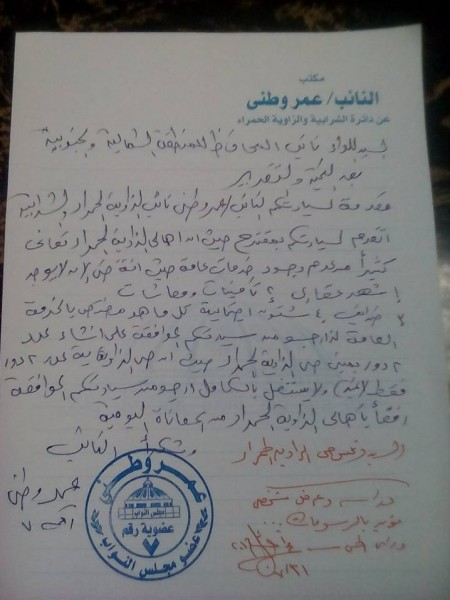 مكتب
النائب/ عمر وطنى
عن دائرة الشرابية والزاوية الحمراء
السيد اللواء نائب المحافظ للمنطقة الشمالية والجنوبية
بعد التحية والتقدير
مقدمة لسيادتكم النائب/ عمر وطنى نائب الزاوية الحمراء والشرابية
اتقدم لسيادتكم بمقترح حيث ان اهالى الزاوية الحمراء تعانى
كثيراً من عدم وجود خدمات عامة حيث انة حتى الان لا يوجد
١ شهر عقارى ٢ تأمينات ومعاشات
٣ ٤ شئون اجتماعية كل ما هو مختص بالخدمة
العامة لذا ارجو من سيادتكم الموافقة على انشاء عدد
٢ دور بمبنى حى الزاوية الحمراء حيث ان حى الزاوية بة عدد ٢ دور
فقط ولا مستغل بالكامل ارجو من سيادتكم الموافقة
رفقاً بأهالى الزاوية الحمراء من المعاناة اليومية
وشكراً النائب
عمر وطنى
السيد رئيس حى الزاوية الحمراء
عمر وطنى
مجلس النواب
عضوية رقم
٧
عضو مجلس النواب